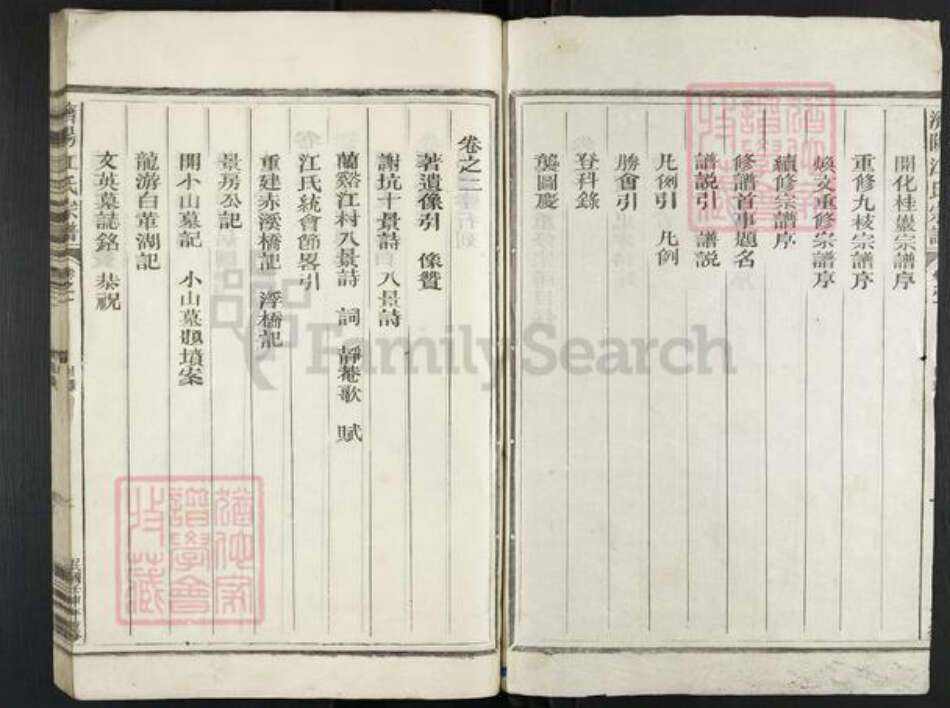 開化桂巖宗譜序
重修九枝宗譜序
煥文重修宗譜序
續修宗譜序
修譜首事題名
譜說引 譜說
凡例引 凡例
勝會引
登科錄
襲圖慶
卷之二
著遺像引 像贊
謝坑十景詩 八景詩
蘭谿江村八景詩 詞 靜菴歌 賦
江氏統會節畧引
重建赤溪橋記 浮橋記
景房公記
開小山墓記 小山墓題墳案
龍游白革湖記
文英墓誌銘 恭祝
濟陽江氏宗譜
FamilySearch
猶他家譜學會收藏
猶他家譜學會收藏